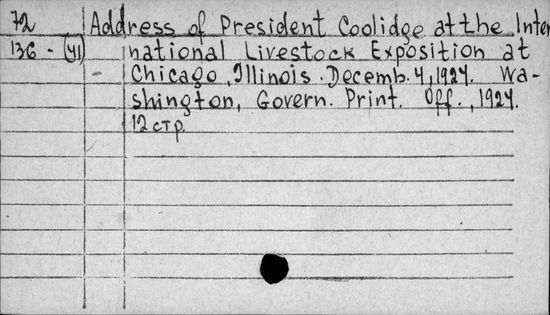 72 Address of President Coolidge at the Inter
136-(41) national Livestock Exposition at
- Chicago, Illinois. Decemb. 4, 1924. Wa-
shington, Govern. Print. Off., 1924.
12 стр.